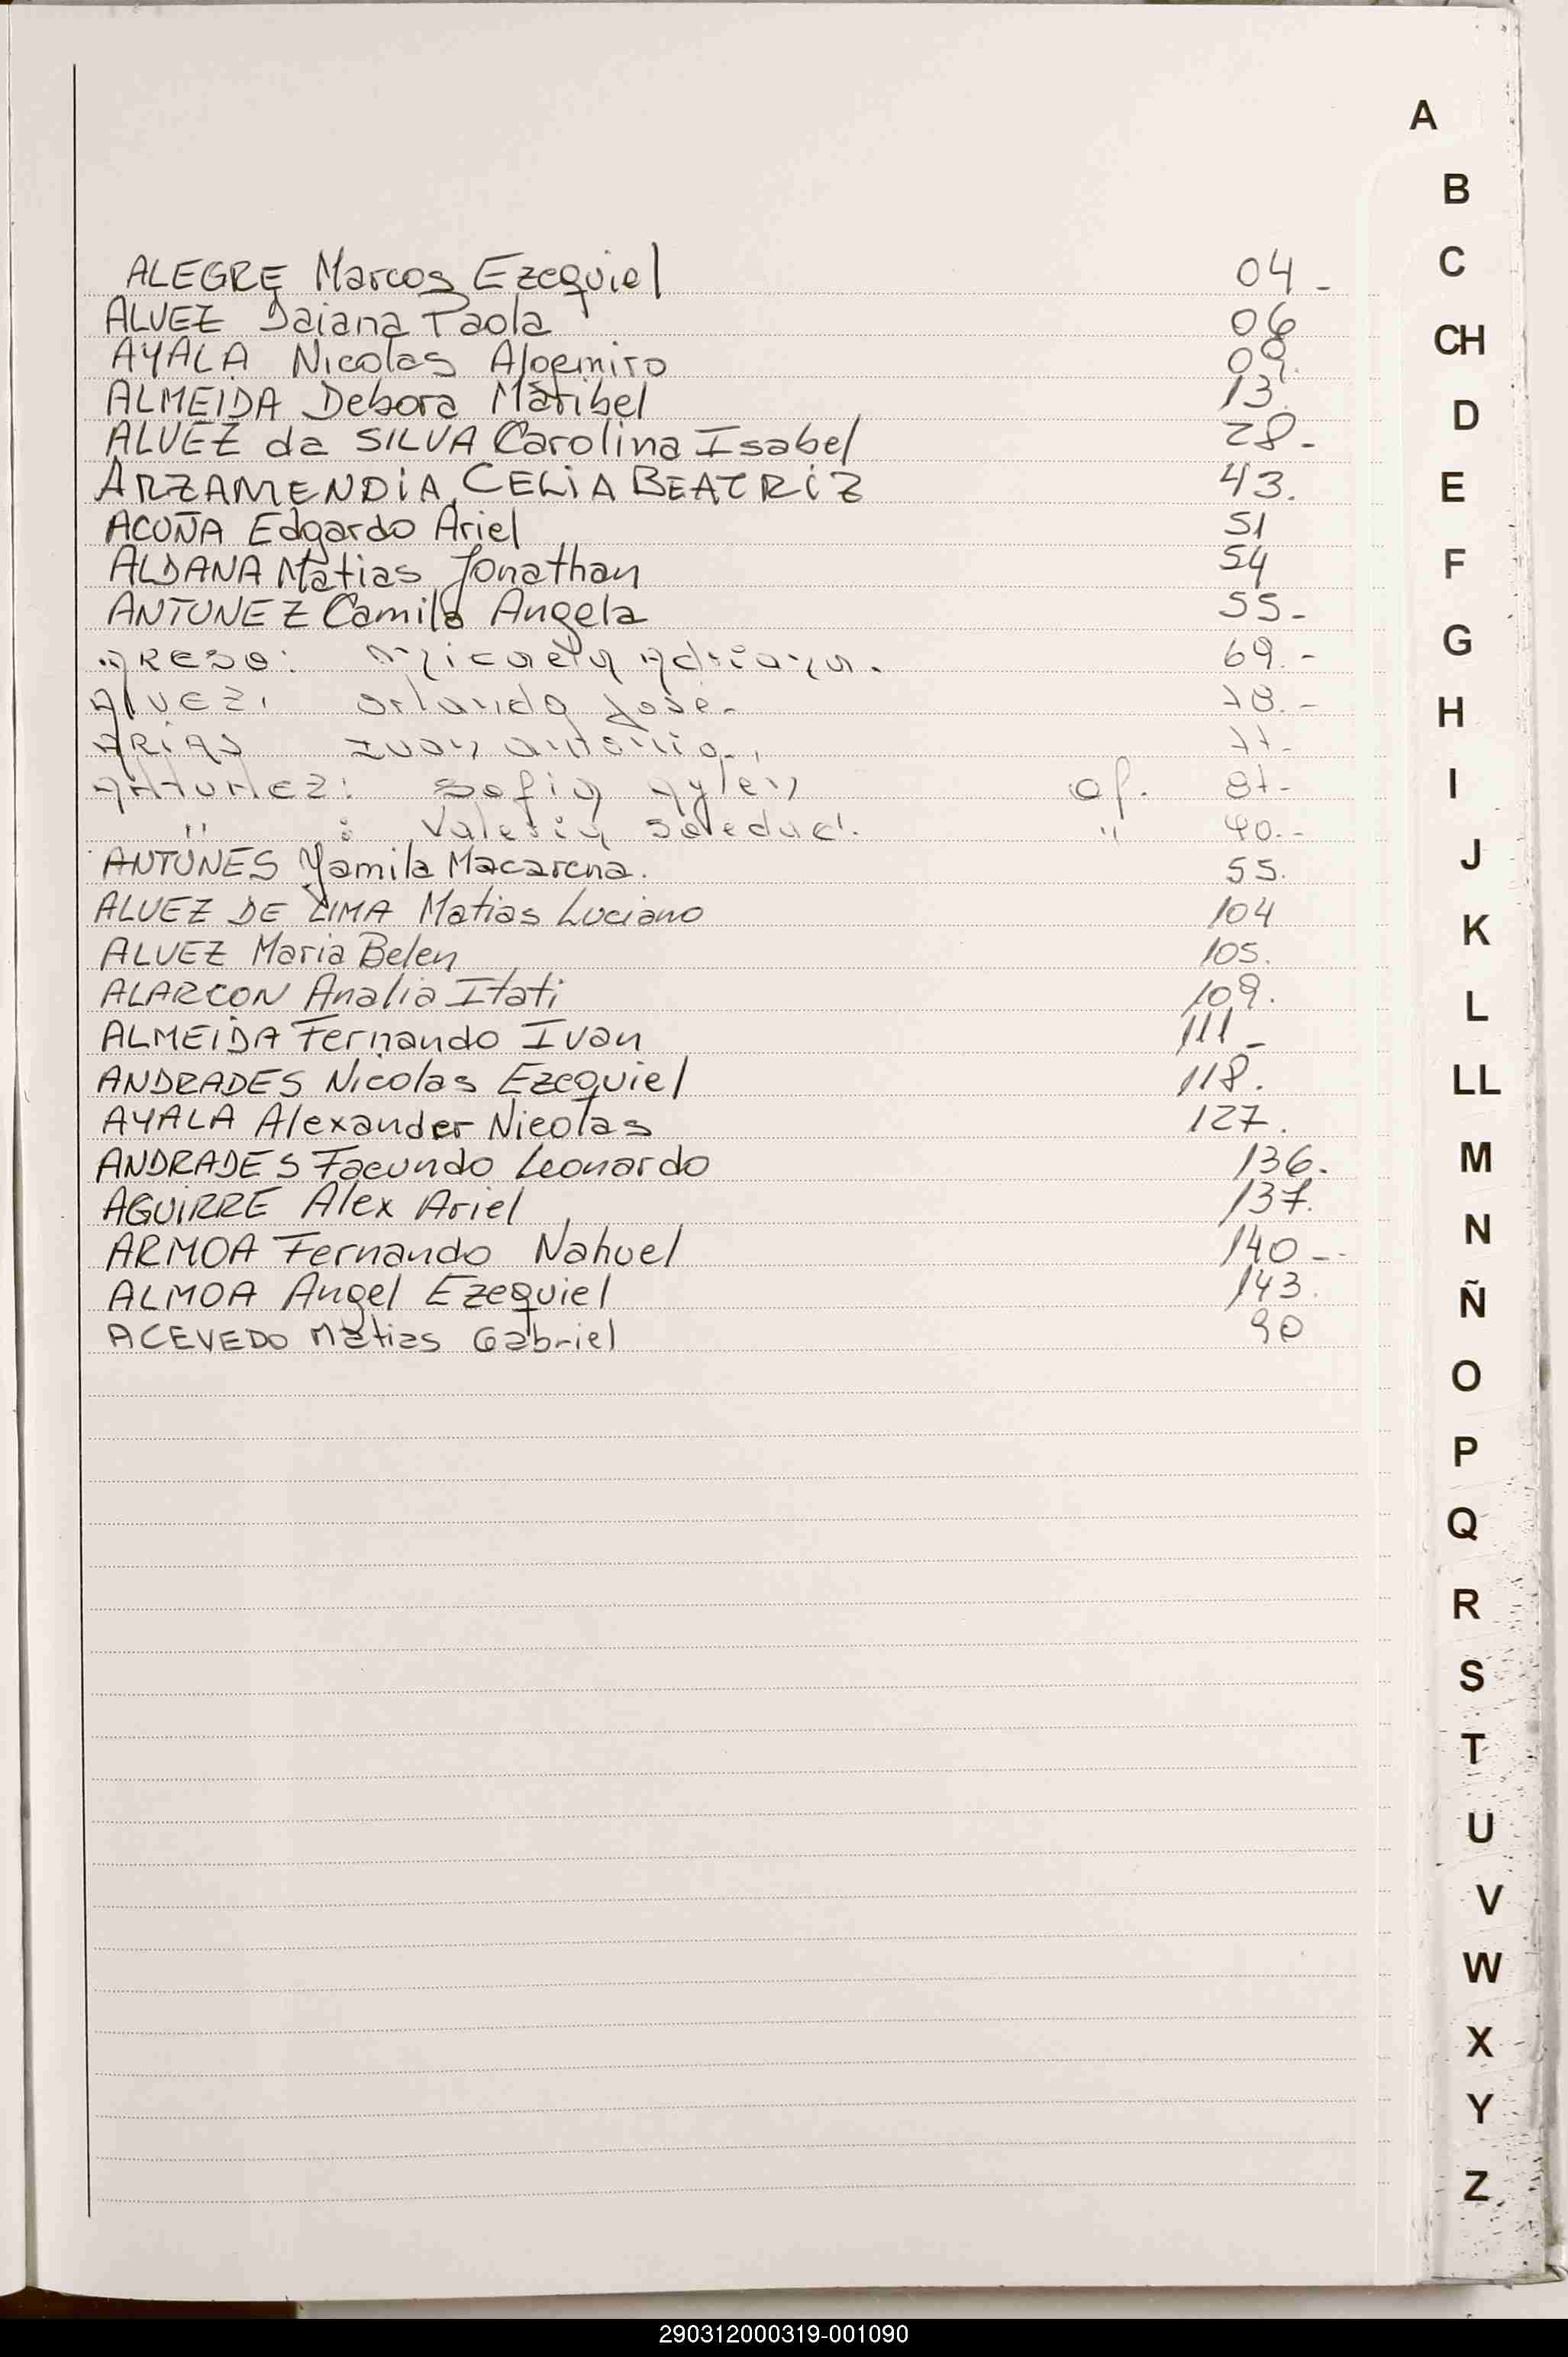 A
B
C
CH
D
E
F
G
H
I
J
K
L
LL
M
N
Ñ
O
P
Q
R
S
T
U
V
W
X
Y
Z
ALEGRE Marcos Ezequiel 04 -
ALVEZ Daiana Paola 06
AYALA Nicolas 09.
ALMEIDA Debora Maribel 13.
ALVEZ da SILVA Carolina Isabel 28 -
ARZAMENDIA, CELIA BEATRIZ 43.
ACUÑA Edgardo Ariel 51
ALDANA Matias Jonathan 54
ANTUNEZ Camila Angela 55 -
Micaela Adriana. 69. -
Alvez, Orlando José. 78. -
Arias Juan Antonio.
Antunez: Sofia Aylén of. 87 -
" : Valeria Soledad. " 90. -
ANTUNES Yamila Macarena. 55.
ALVEZ DE LIMA Matias Luciano 104
ALVEZ Maria Belen 105.
ALARCON Analia Itati 109.
ALMEIDA Fernando Ivan 111 -
ANDRADES Nicolas Ezequiel 118.
AYALA Alexander Nicolas 127.
ANDRADES Facundo Leonardo 136.
AGUIRRE Alex Ariel 137.
ARMOA Fernando Nahuel 140 - -
ALMOA Angel Ezequiel 143.
ACEVEDO Matias Gabriel 90
290312000319-001090